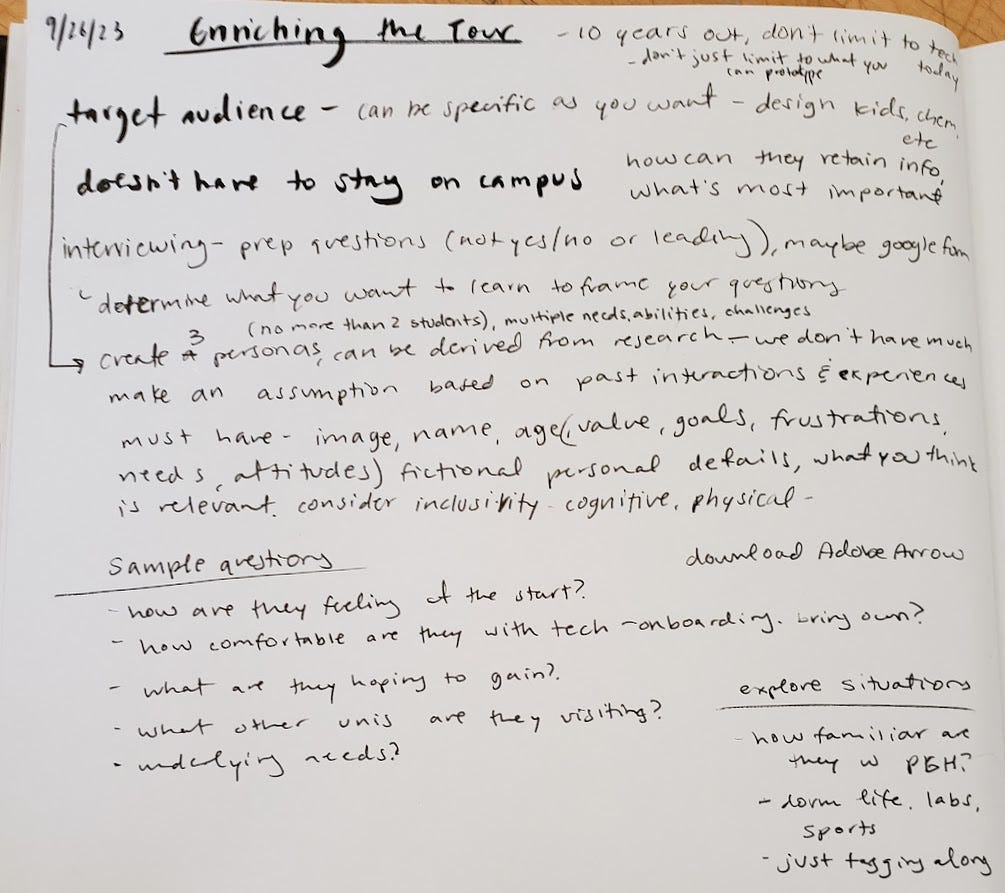 9/26/23 Enriching the Tour - 10 years out, don't limit to tech today
- don't just limit to what you
can prototype
target audience - can be specific as you want - design kids, chem,
etc
how can they retain info,
doesn't have to stay on campus what's most important
interviewing - prep questions (not yes/no or leading), maybe google form
determine what you want to learn to frame your questions
(no more than 2 students), multiple needs, abilities, challenges
create 3 personas, can be derived from research - we don't have much
make an assumption based on past interactions & experiences
must have - image, name, age (, value, goals, frustrations,
needs, attitudes) fictional personal details, what you think
is relevant. consider inclusivity - cognitive, physical -
Sample questions
download Adobe Arrow
- how are they feeling at the start?
- how comfortable are they with tech - onboarding. bring own?
- what are they hoping to gain?
- what other unis are they visiting?
- underlying needs?
explore situations
- how familiar are
they w PGH?
- dorm life, labs,
sports
- just tagging along